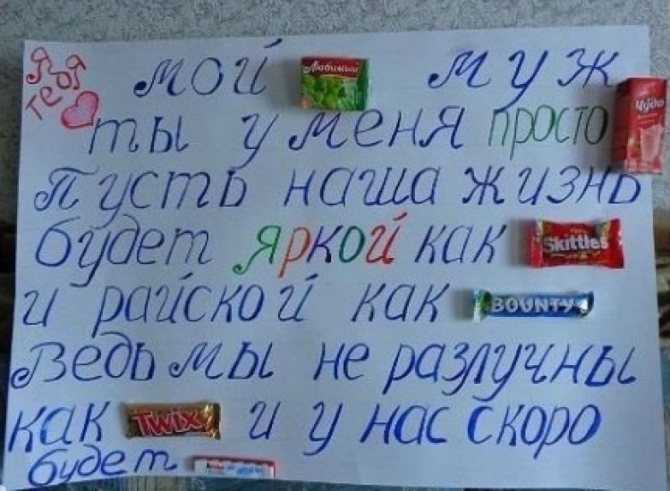 Я
тебя
мой Любимый муж
ты у меня просто Чудо
Пусть наша жизнь
будет яркой как Skittles
и райской как BOUNTY
Ведь мы не разлучны
как TWIX и у нас скоро
будет